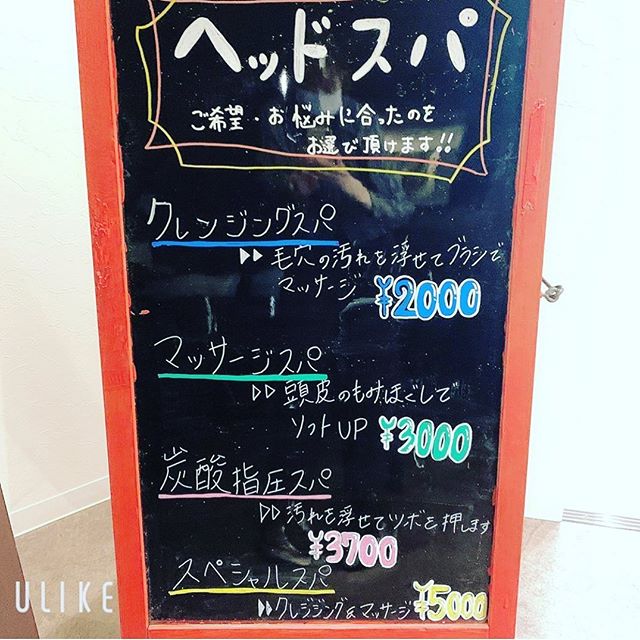 ヘッドスパ
ご希望・お悩みに合ったのを
お選び頂けます!!
クレンジングスパ
▷▷毛穴の汚れを浮せてブラシで
マッサージ ¥2000
マッサージスパ
▷▷頭皮のもみほぐして
ソフトUP ¥3000
炭酸指圧スパ
▷▷汚れを浮せてツボを押します
¥3700
スペシャルスパ
▷▷クレジジング&マッサージ ¥5000
ULIKE